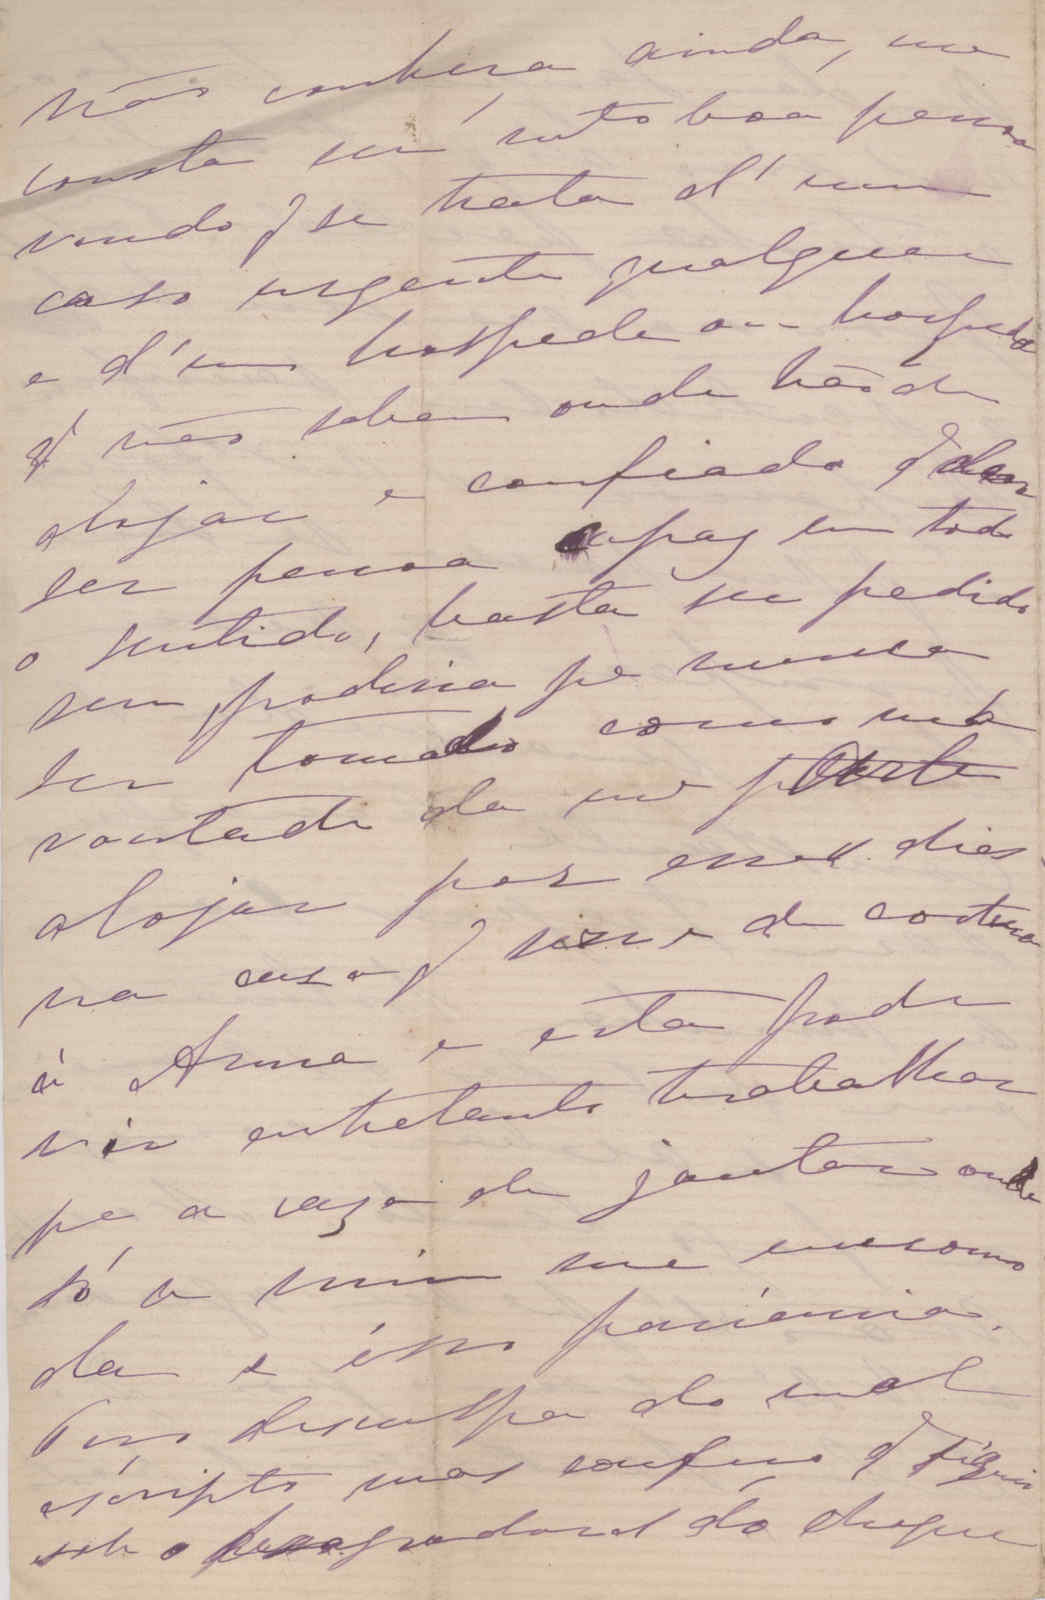 não conheça ainda, me
consta ser mto boa pessoa
vendo q se trata d'um
caso urgente qualquer
e d'um hospede ou hospeda
q não sabem onde hãode
alojar e confiada q
ser pessoa capaz em todo
o sentido, basta ser pedido
sem poderia pa nunca
ser tomado como má
vontade da me parte
alojar por esses dias
na casa q serve de costura
á Anna e esta pode
vir entretanto trabalhar
pa a caza de jantar onde
só a mim me encomo
da e isso paciencia.
Peço desculpa do mal
escripto mas confesso q fiquei
sob o desagradavel do choque